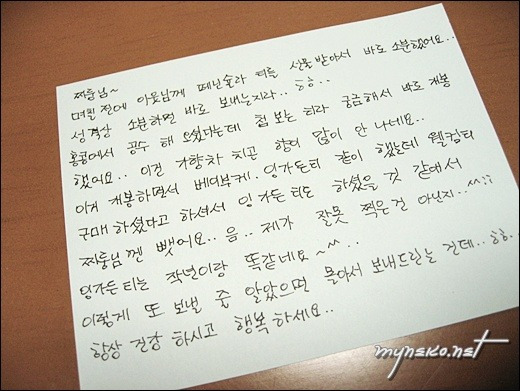 찌룽님~
며칠 전에 이웃님께 페닌슐라 티를 선물 받아서 바로 소분했어요..
성격상 소분하면 바로 보내는지라.. 흐흐..
홍콩에서 공수 해 오셨다는데 첨 보는 티라 궁금해서 바로 개봉
했어요.. 이건 가향차 치곤 향이 많이 안 나네요..
이거 개봉하면서 베이부케. 잉가든티 같이 했는데 웰컴티
구매 하셨다고 하셔서 잉가든티도 하셨을 것 같애서
찌룽님껜 뺐어요.. 음.. 제가 잘못 찍은건 아닌지..^^;;
잉가든티는 작년이랑 똑같네요~^^..
이렇게 또 보낼 줄 알았으면 몰아서 보내드리는 건데.. 흐흐..
항상 건강 하시고 행복하세요..
myneko.net